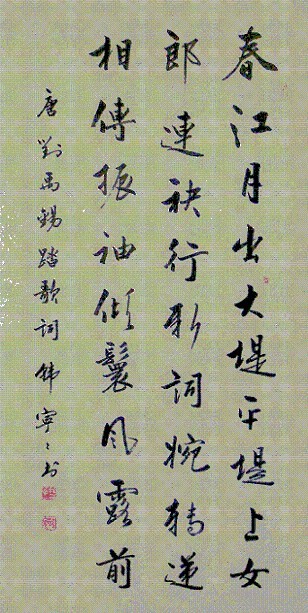 春江月出大堤平堤上女
郎連袂行新詞婉轉遞
相傳振袖傾鬟风露前
唐劉禹錫踏歌詞 韩寧寧书